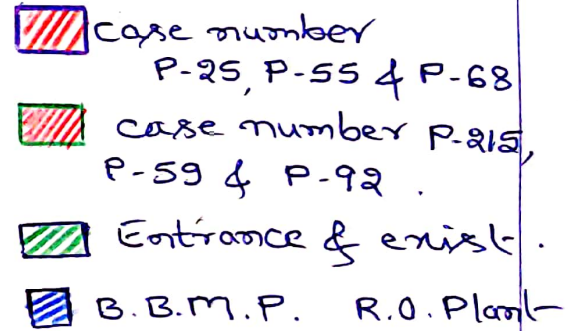 case number
P-25, P-55 & P-68
case number P-215,
P-59 & P-92.
Entrance & exist.
B.B.M.P. R.O. Plant